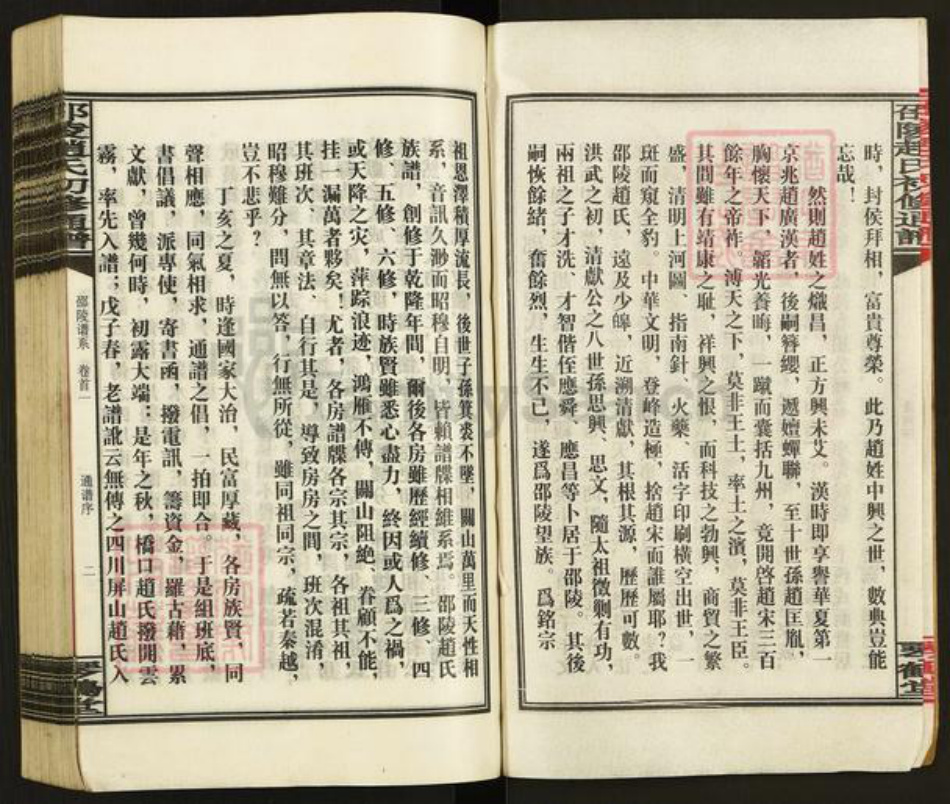 邵陵趙氏初修通譜
時，封侯拜相，富貴尊榮。此乃趙姓中興之世，數典豈能
忘哉！
然則趙姓之熾昌，正方興未艾。漢時即享譽華夏第一
京兆趙廣漢者，後嗣簪纓，遞嬗蟬聯，至十世孫趙匡胤，
胸懷天下，韜光養晦，一蹴而囊括九州，竟開啓趙宋三百
餘年之帝祚。溥天之下，莫非王土，率土之濱，莫非王臣。
其間雖有靖康之耻，祥興之恨，而科技之勃興，商貿之繁
盛，清明上河圖、指南針、火藥、活字印刷橫空出世，一
斑而窺全豹。中華文明，登峰造極，捨趙宋而誰屬耶？我
邵陵趙氏，遠及少皞，近溯清獻，其根其源，歷歷可數。
洪武之初，清獻公之八世孫思興、思文，隨太祖徵剿有功，
兩祖之子才洗、才智偕侄應舜、應昌等卜居于邵陵。其後
嗣恢餘緒，奮餘烈，生生不已，遂爲邵陵望族。爲銘宗
琴鶴堂
祖恩澤積厚流長，後世子孫箕裘不墜，關山萬里而天性相
系，音訊久渺而昭穆自明，皆賴譜牒相維系焉。邵陵趙氏
族譜，創修于乾隆年間，爾後各房雖歷經續修、三修、四
修、五修、六修，時族賢雖悉心盡力，終因或人爲之禍，
或天降之灾，萍踪浪迹，鴻雁不傳，關山阻絶，眷顧不能，
挂一漏萬者夥矣！尤者，各房譜牒各宗其宗，各祖其祖，
其班次、其章法、自行其是，導致房房之間，班次混淆，
昭穆難分，問無以答，行無所從，雖同祖同宗，疏若秦越，
豈不悲乎？
丁亥之夏，時逢國家大治，民富厚藏，各房族賢，同
聲相應，同氣相求，通譜之倡，一拍即合。于是組班底，
書倡議，派專使，寄書函，撥電訊，籌資金，羅古藉，累
文獻，曾幾何時，初露大端；是年之秋，橋口趙氏撥開雲
霧，率先入譜；戊子春，老譜訛云無傳之四川屏山趙氏入
邵陵趙氏初修通譜
邵陵谱系 卷首一
通谱序
二
琴鶴堂